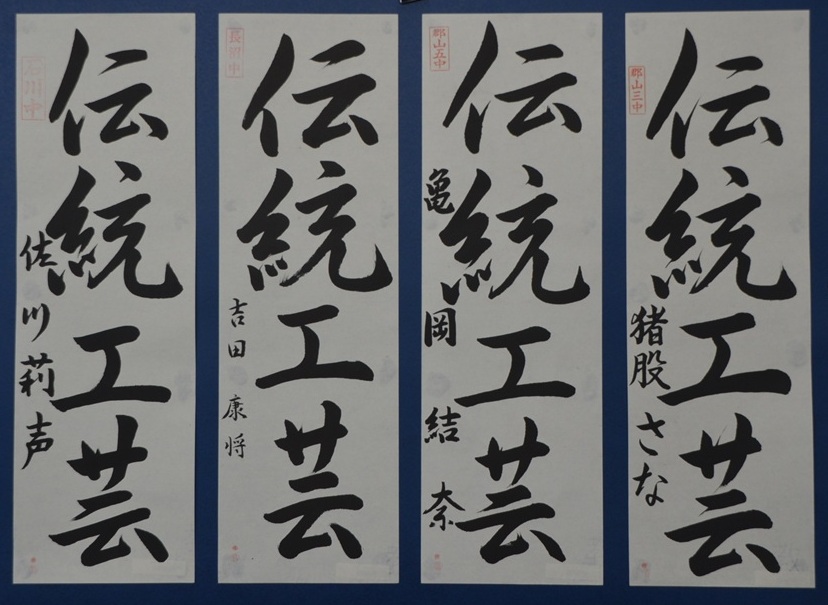 郡山三中
伝統工芸
猪股さな
郡山五中
伝統工芸
亀岡結奈
長沼中
伝統工芸
吉田康将
石川中
伝統工芸
佐川莉声